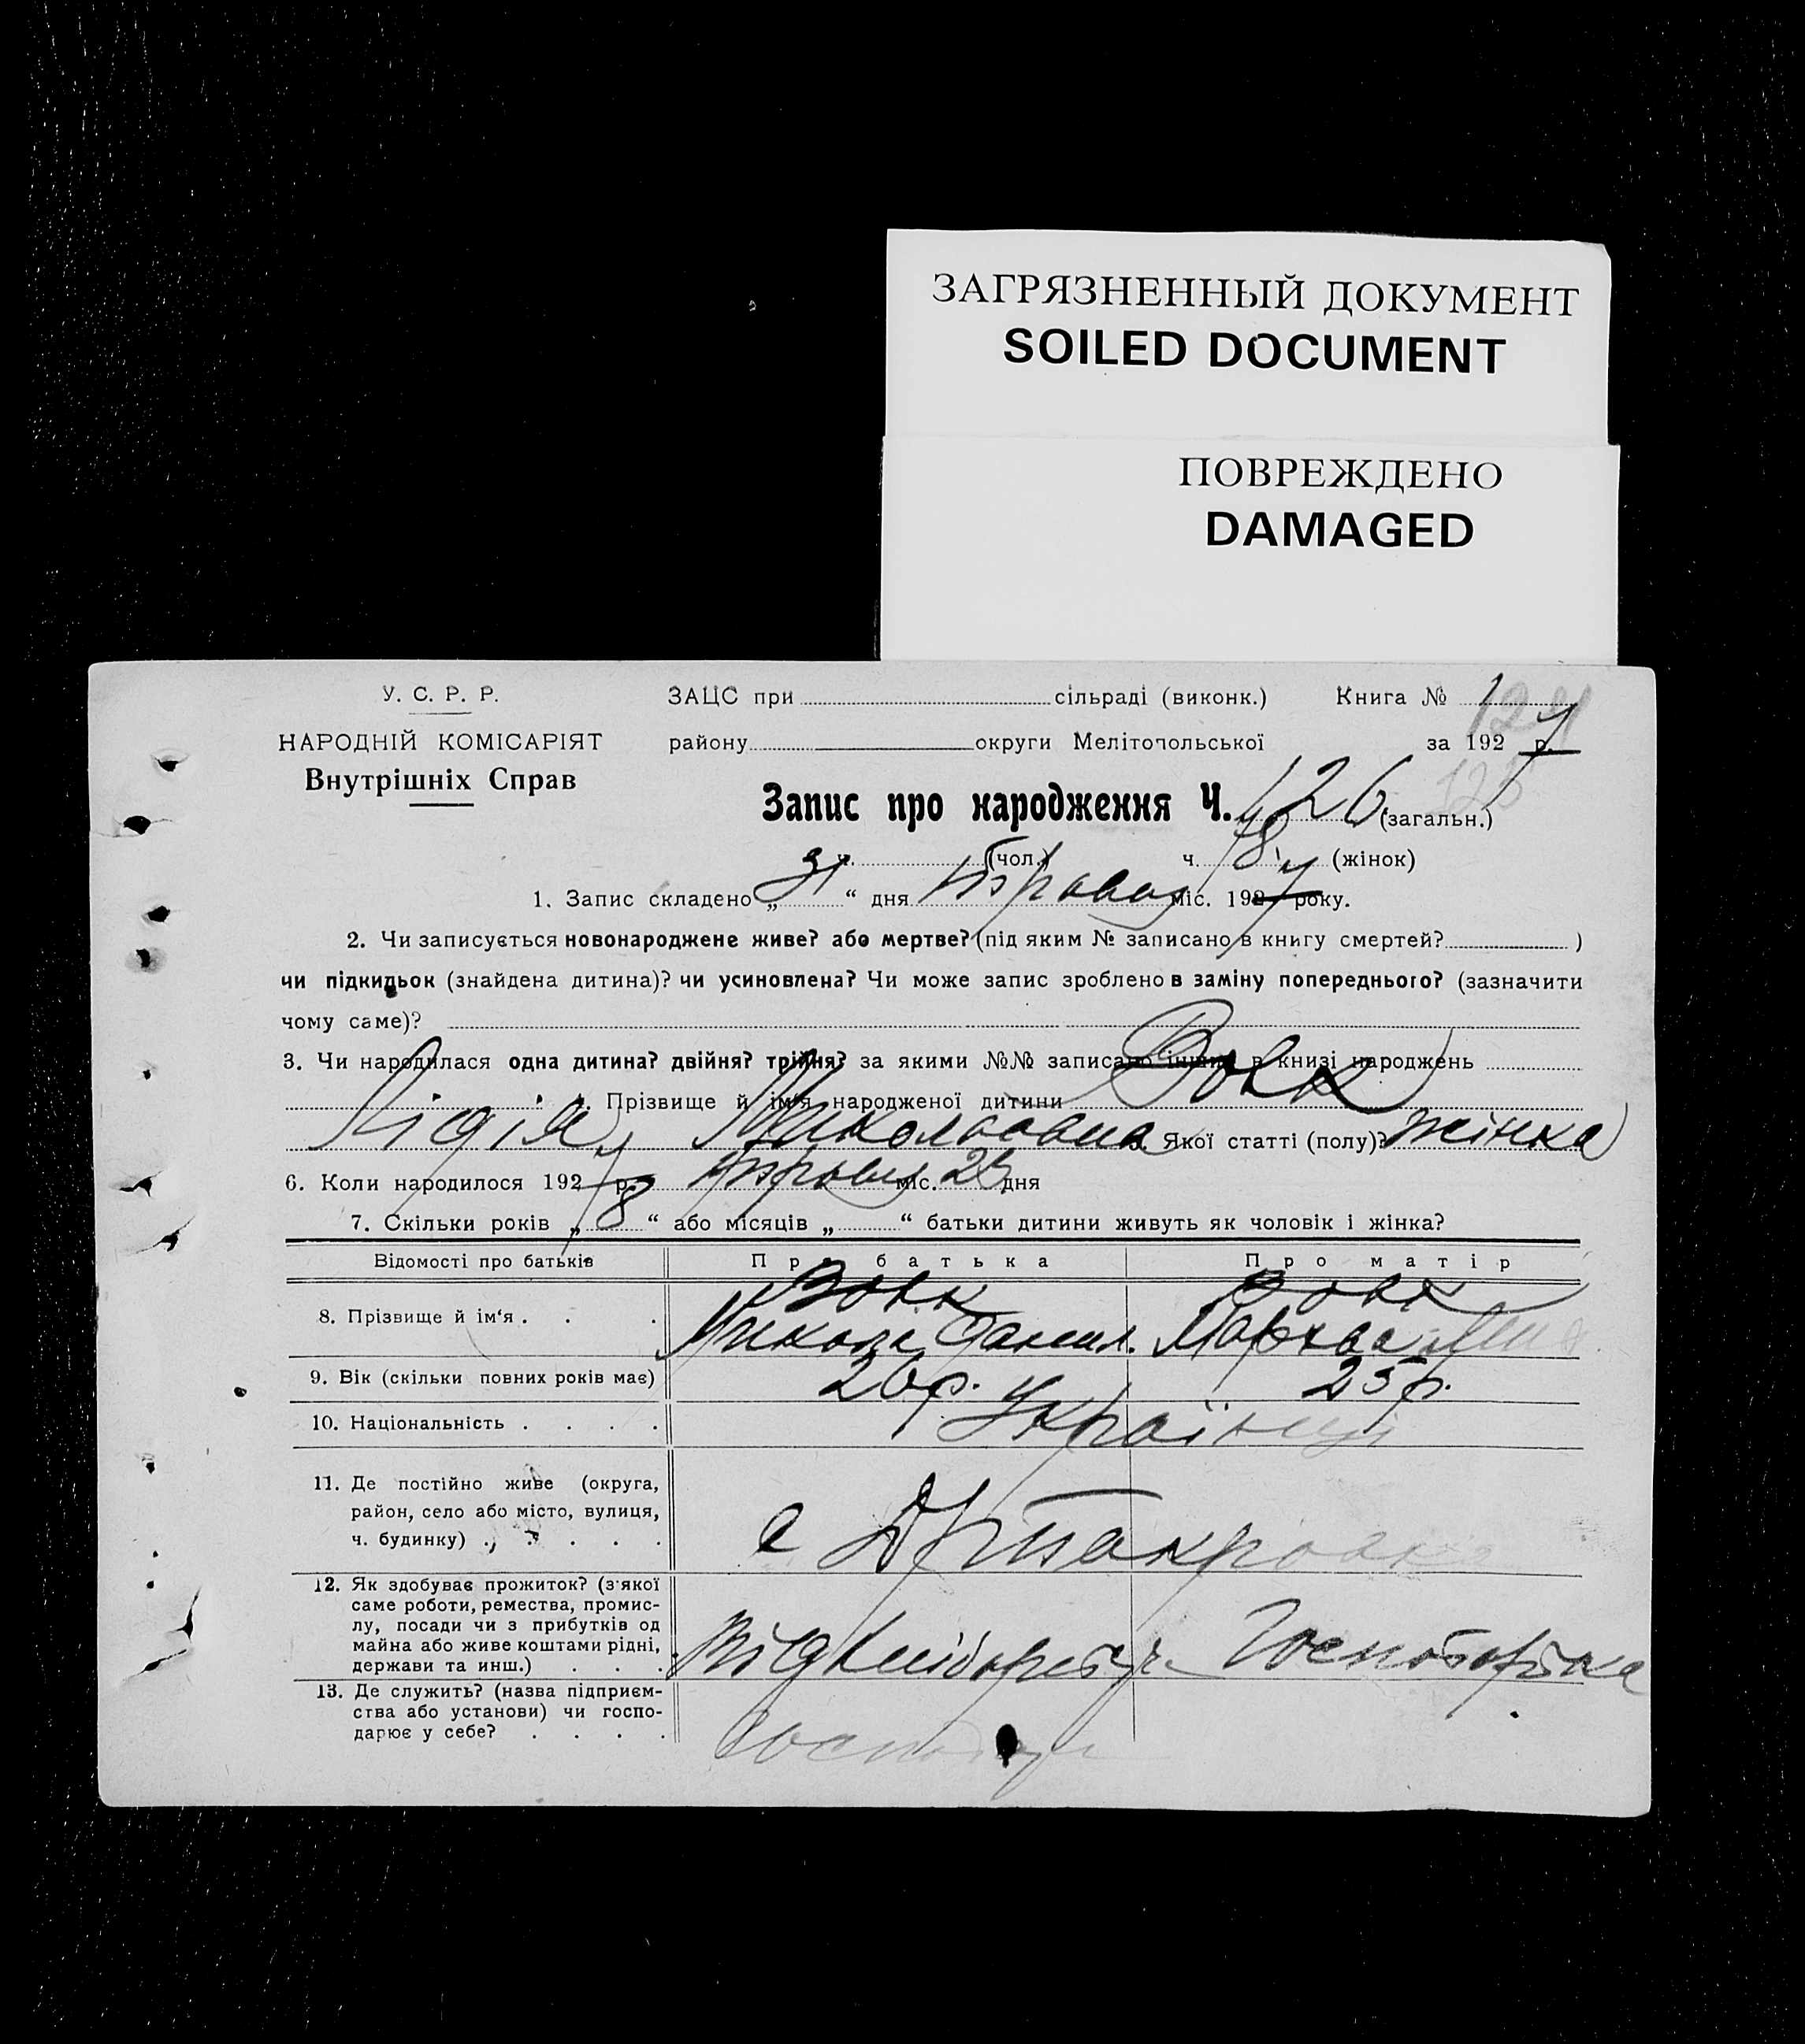 ЗАГРЯЗНЕННЫЙ ДОКУМЕНТ
SOILED DOCUMENT
ПОВРЕЖДЕНО
DAMAGED
У. С. Р. Р.
НАРОДНІЙ КОМІСАРІЯТ
Внутрішніх Справ
ЗАЦС при сільраді (виконк.) Книга № 1
району округи Мелітопольської за 1927 р.
Запис про народження Ч. 126 (загальн.)
ч. (чол.) ч. 78 (жінок)
1. Запис складено „31“ дня міс. 1927 року.
2. Чи записується новонароджене живе? або мертве? (під яким № записано в книгу смертей? )
чи підкидьок (знайдена дитина)? чи усиновлена? Чи може запис зроблено в заміну попереднього? (зазначити
чому саме)?
3. Чи народилася одна дитина? двійня? трійня? за якими №№ записано інших в книзі народжень
4. Прізвище й ім'я народженої дитини Вовк
Лідія Миколаовна 5. Якої статті (полу)? жінка
6. Коли народилося 1927 р. міс. дня
7. Скільки років „8“ або місяців „ “ батьки дитини живуть як чоловік і жінка?
Відомості про батьків Про батька Про матір
Вовк Вовк
8. Прізвище й ім'я . . . Микола Данил.
9. Вік (скільки повних років має) 26р. 25р.
10. Національність . . . . Українці
11. Де постійно живе (округа,
район, село або місто, вулиця,
ч. будинку) . . . . .
12. Як здобуває прожиток? (з'якої
саме роботи, ремества, промис-
лу, посади чи з прибутків од
майна або живе коштами рідні,
держави та инш.) . . .
13. Де служить? (назва підприєм-
ства або установи) чи госпо-
дарює у себе? . . . .